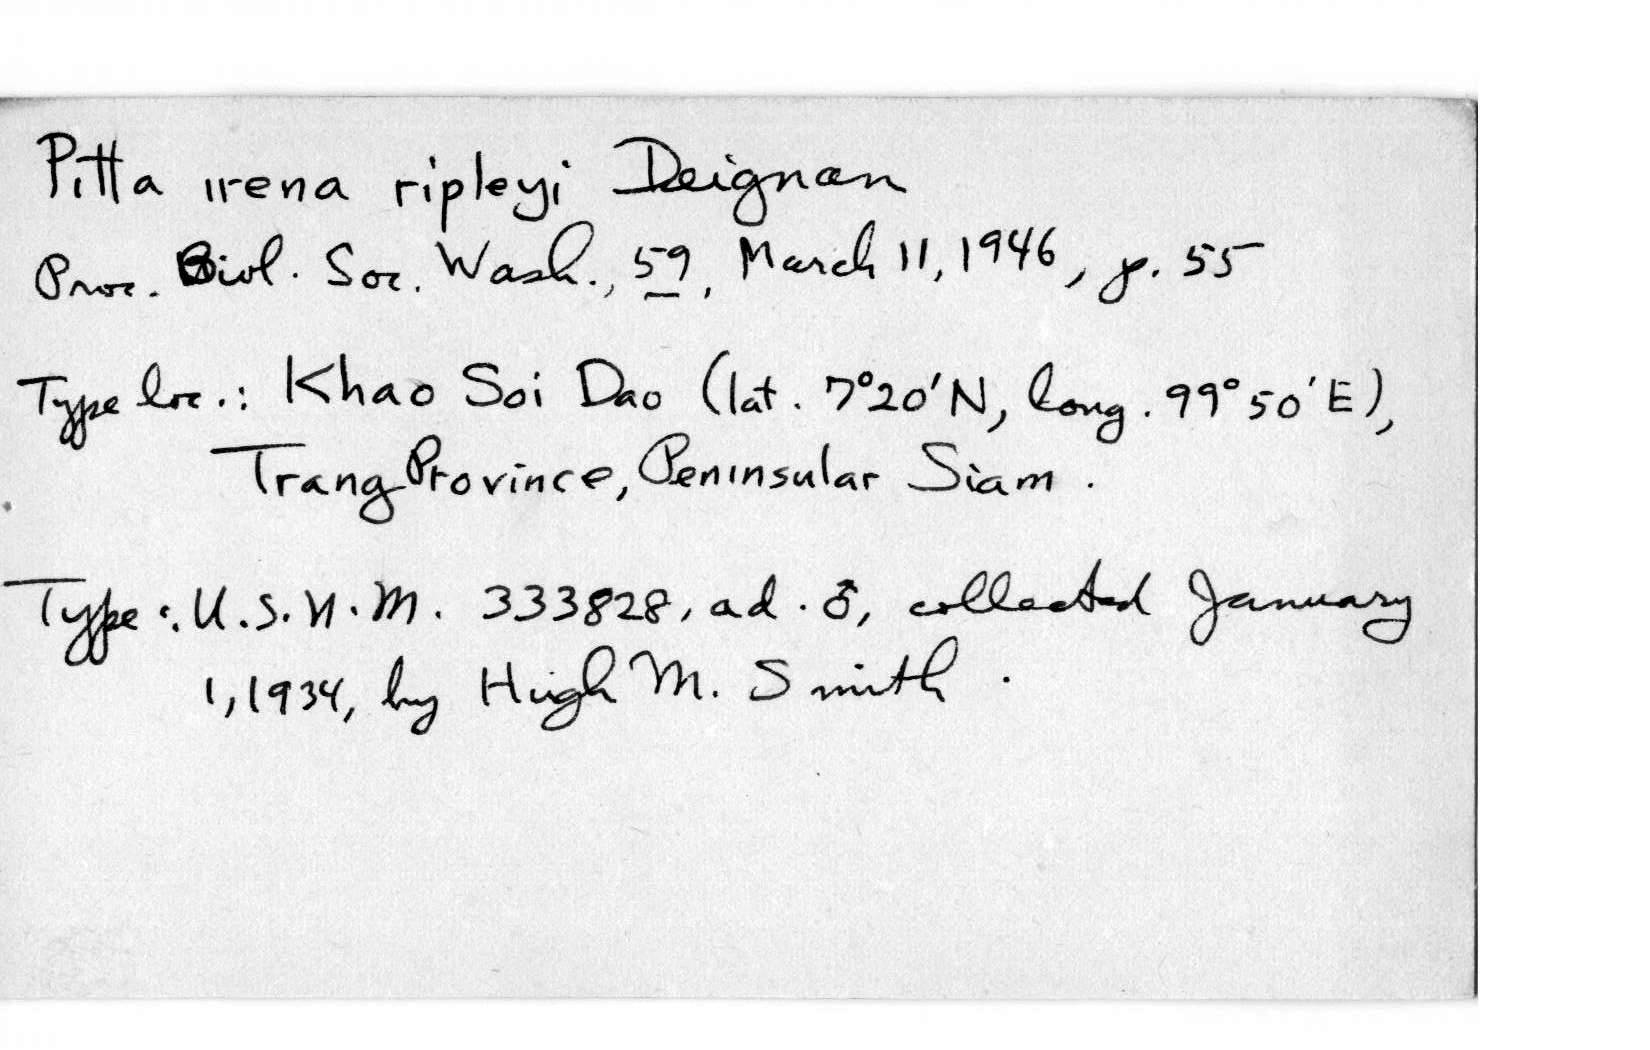 Pitta irena ripleyi Deignan
Proc. Biol. Soc. Wash., 59, March 11, 1946, p. 55
Type loc.: Khao Soi Dao (lat. 7°20'N, long. 99°50'E),
Trang Province, Peninsular Siam.
Type: U.S.N.M. 333828, ad. ♂, collected January
1, 1934, by Hugh M. Smith.